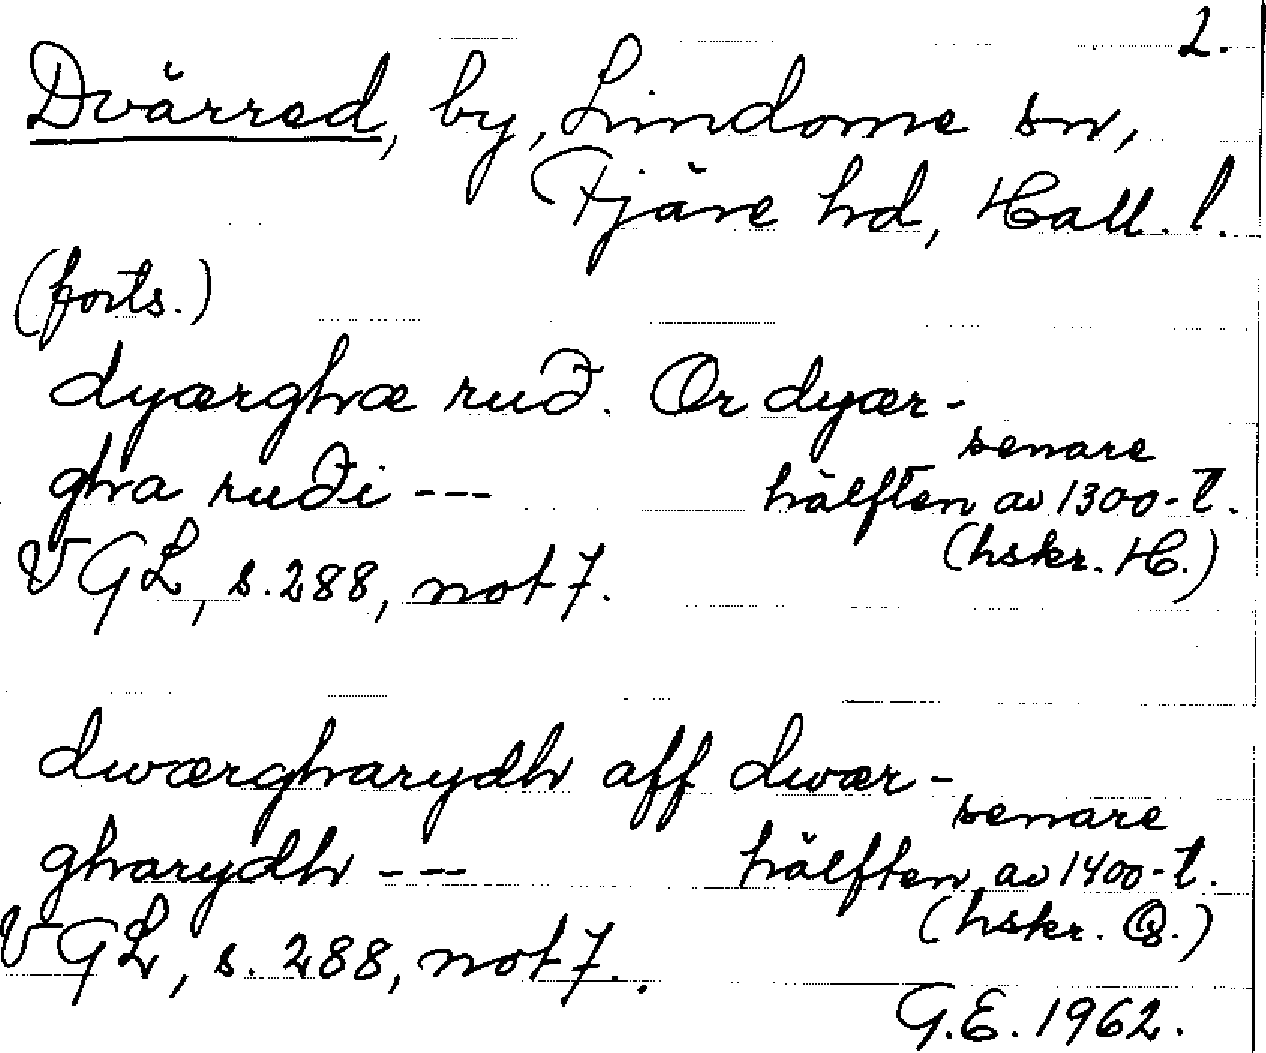 2.
Dvärred, by, Lindome sn,
Fjäre hd, Hall. l.
(forts.)
dyærghæ ruð. Or dyær-
gha ruði --- senare
hälften av 1300-t.
(hskr. H.)
VGL, s. 288, not 7.
dwærgharydh aff dwær-
gharydh --- senare
hälften av 1400-t.
(hskr. Q.)
VGL, s. 288, not 7.
G.E. 1962.